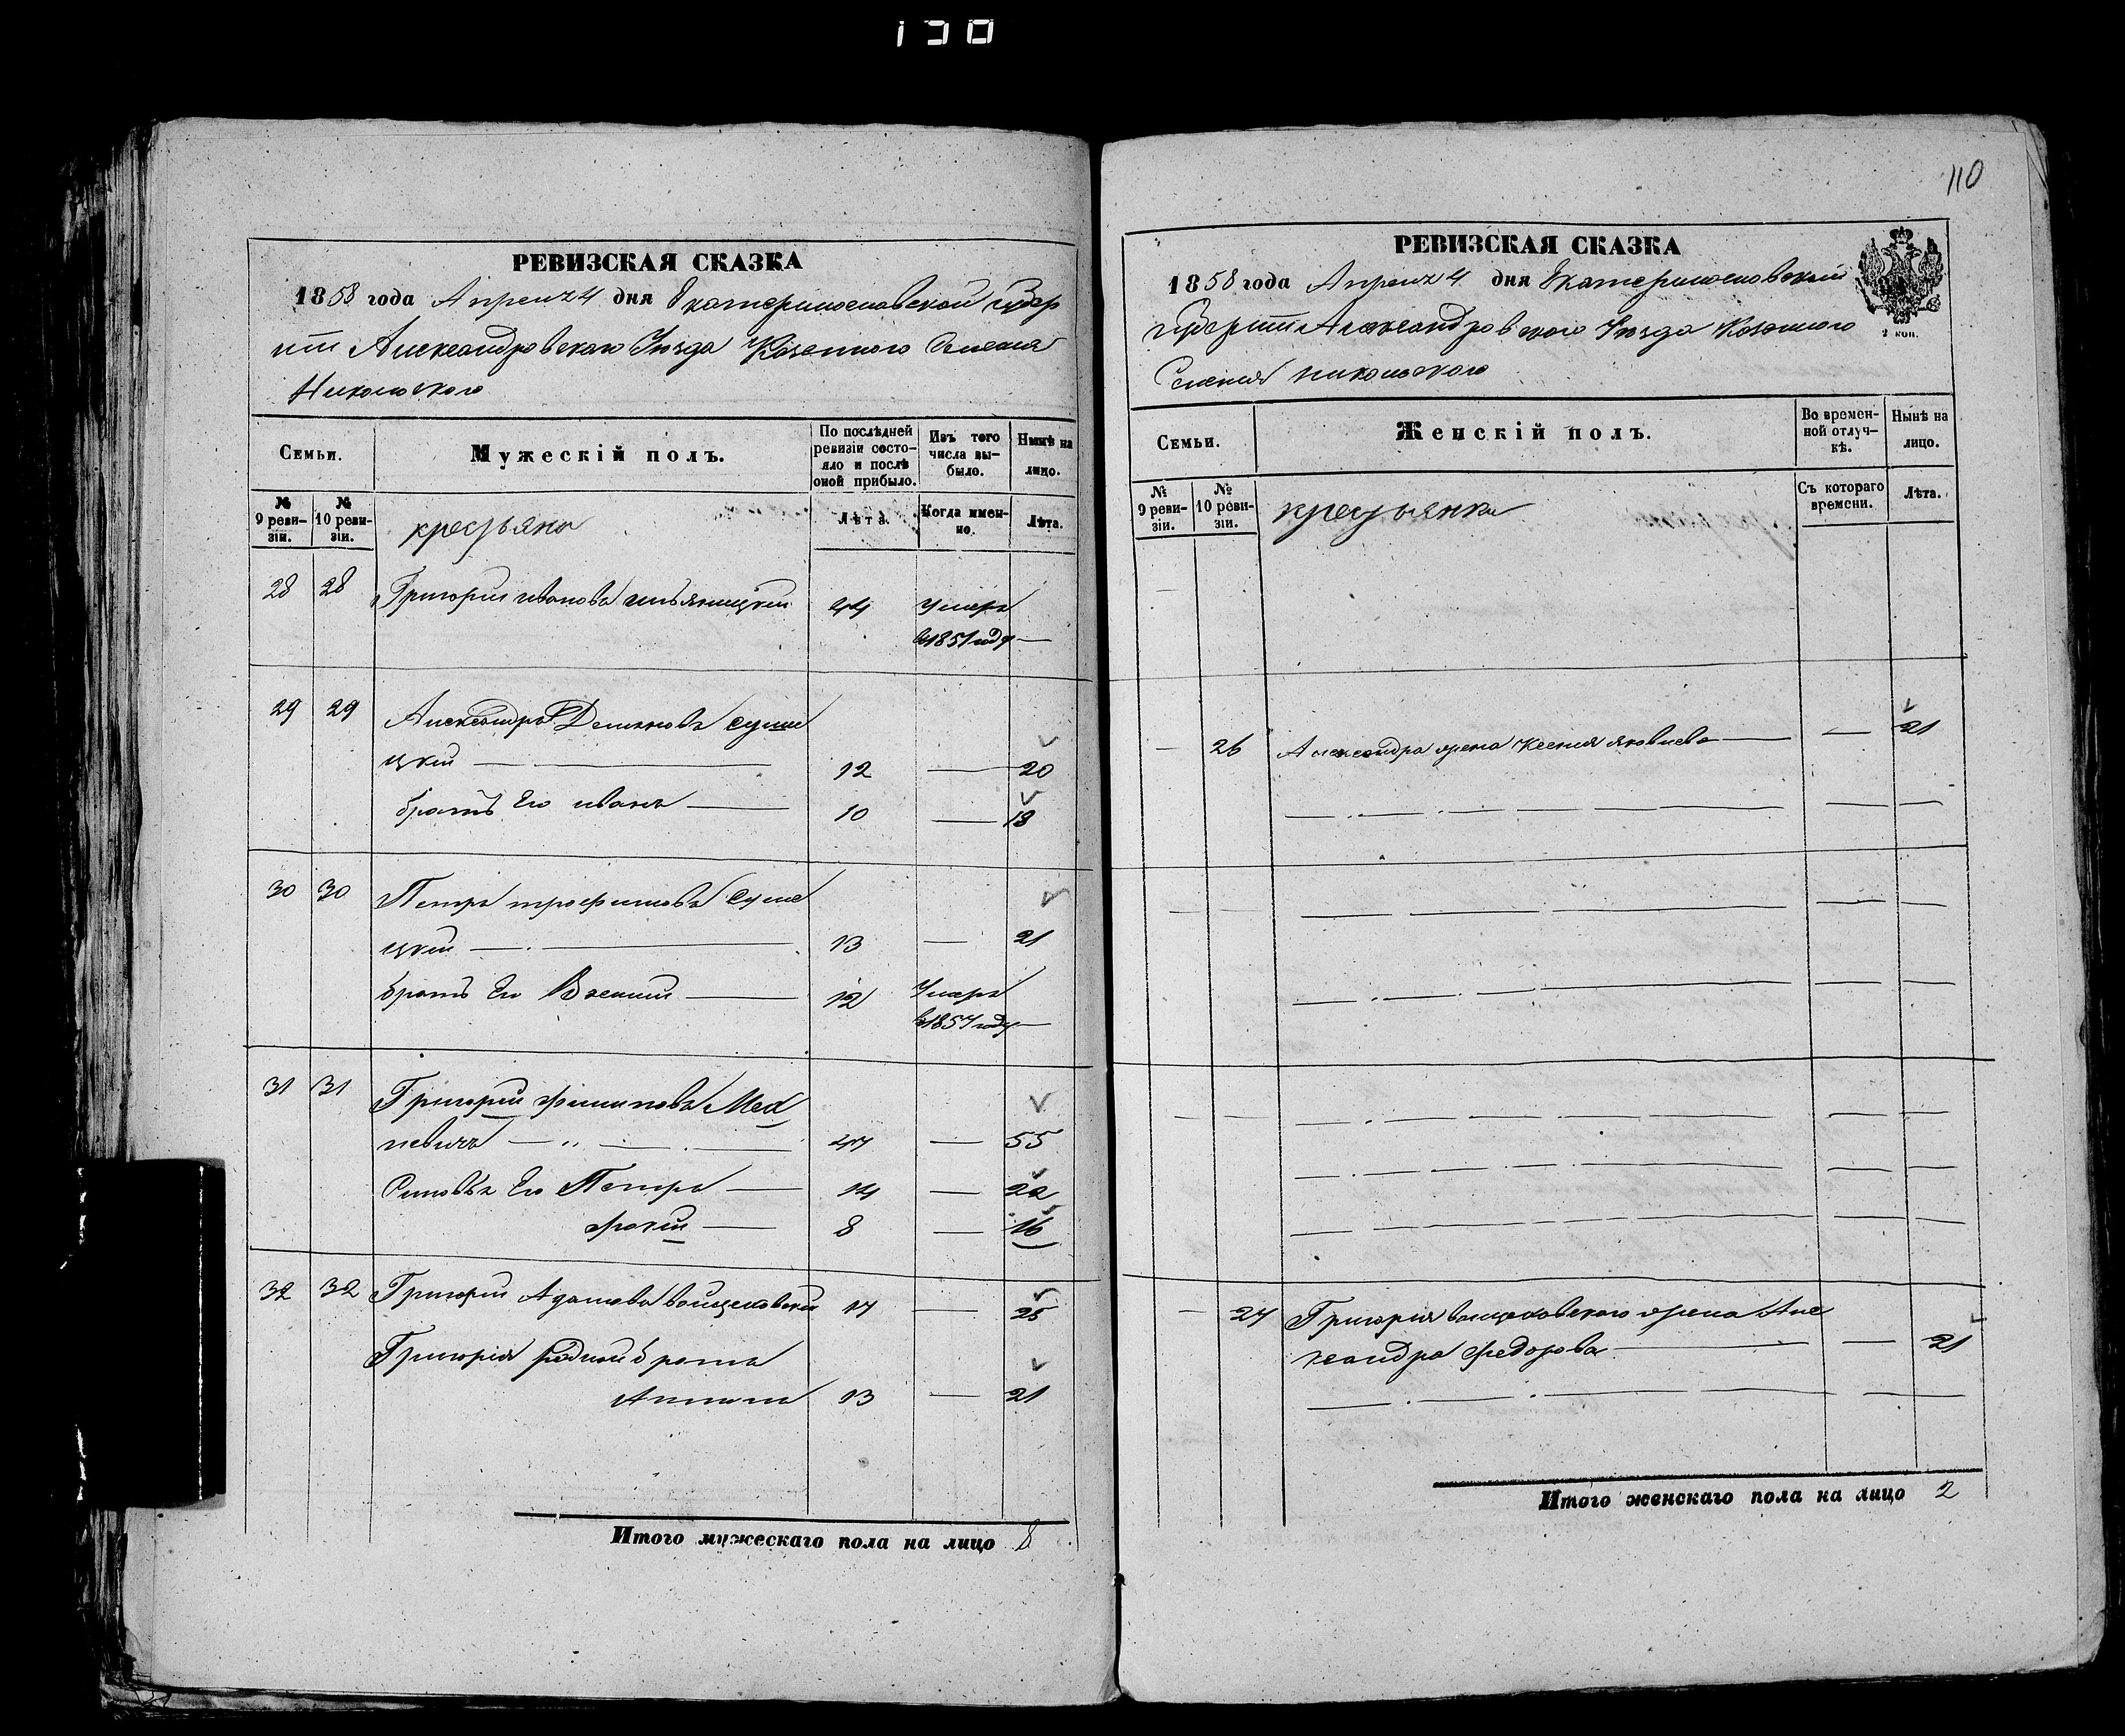 130
РЕВИЗСКАЯ СКАЗКА
1858 года Апреля 4 дня Екатеринославской Губер
нии Александровскаго Уезда Казенного Селения
Никольского
Семьи.
Мужескій полъ.
По послѣдней ревизіи состояло и послѣ оной прибыло.
Изъ того числа выбыло.
Нынѣ на лицо.
№ 9 ревизіи.
№ 10 ревизіи.
крестьяне
Лѣта.
Когда именно.
Лѣта.
28 28 Григорий Иванова 44 Умеръ
в 1851 году —
29 29 Александра Демянова Суши
цкий — 12 — 20
братъ Его Иванъ — 10 — 18
30 30 Петра Трофимова Суше
цкий — 13 — 21
братъ Его Василий — 12 Умеръ
в 1857 году —
31 31 Григорий Филипова Мед
невичъ — 47 — 55
Синовъя Его Петра — 14 — 22
Фокий — 8 — 16
32 32 Григорий Адамова Войцеховский 17 — 25
Григория родной брата
Антона 13 — 21
Итого мужескаго пола на лицо 8
110
РЕВИЗСКАЯ СКАЗКА
1858 года Апреля 4 дня Екатеринославской
Губернии Александровского Уезда Казенного
Селения Никольского
2 коп.
Семьи.
Женскій полъ.
Во временной отлучкѣ.
Нынѣ на лицо.
№ 9 ревизіи.
№ 10 ревизіи.
крестьянки
Съ котораго времени.
Лѣта.
— 26 Александра жена Ксения Яковлева — — 21
— 27 Григория Войцеховского жена Але
ксандра Федорова — — 21
Итого женскаго пола на лицо 2